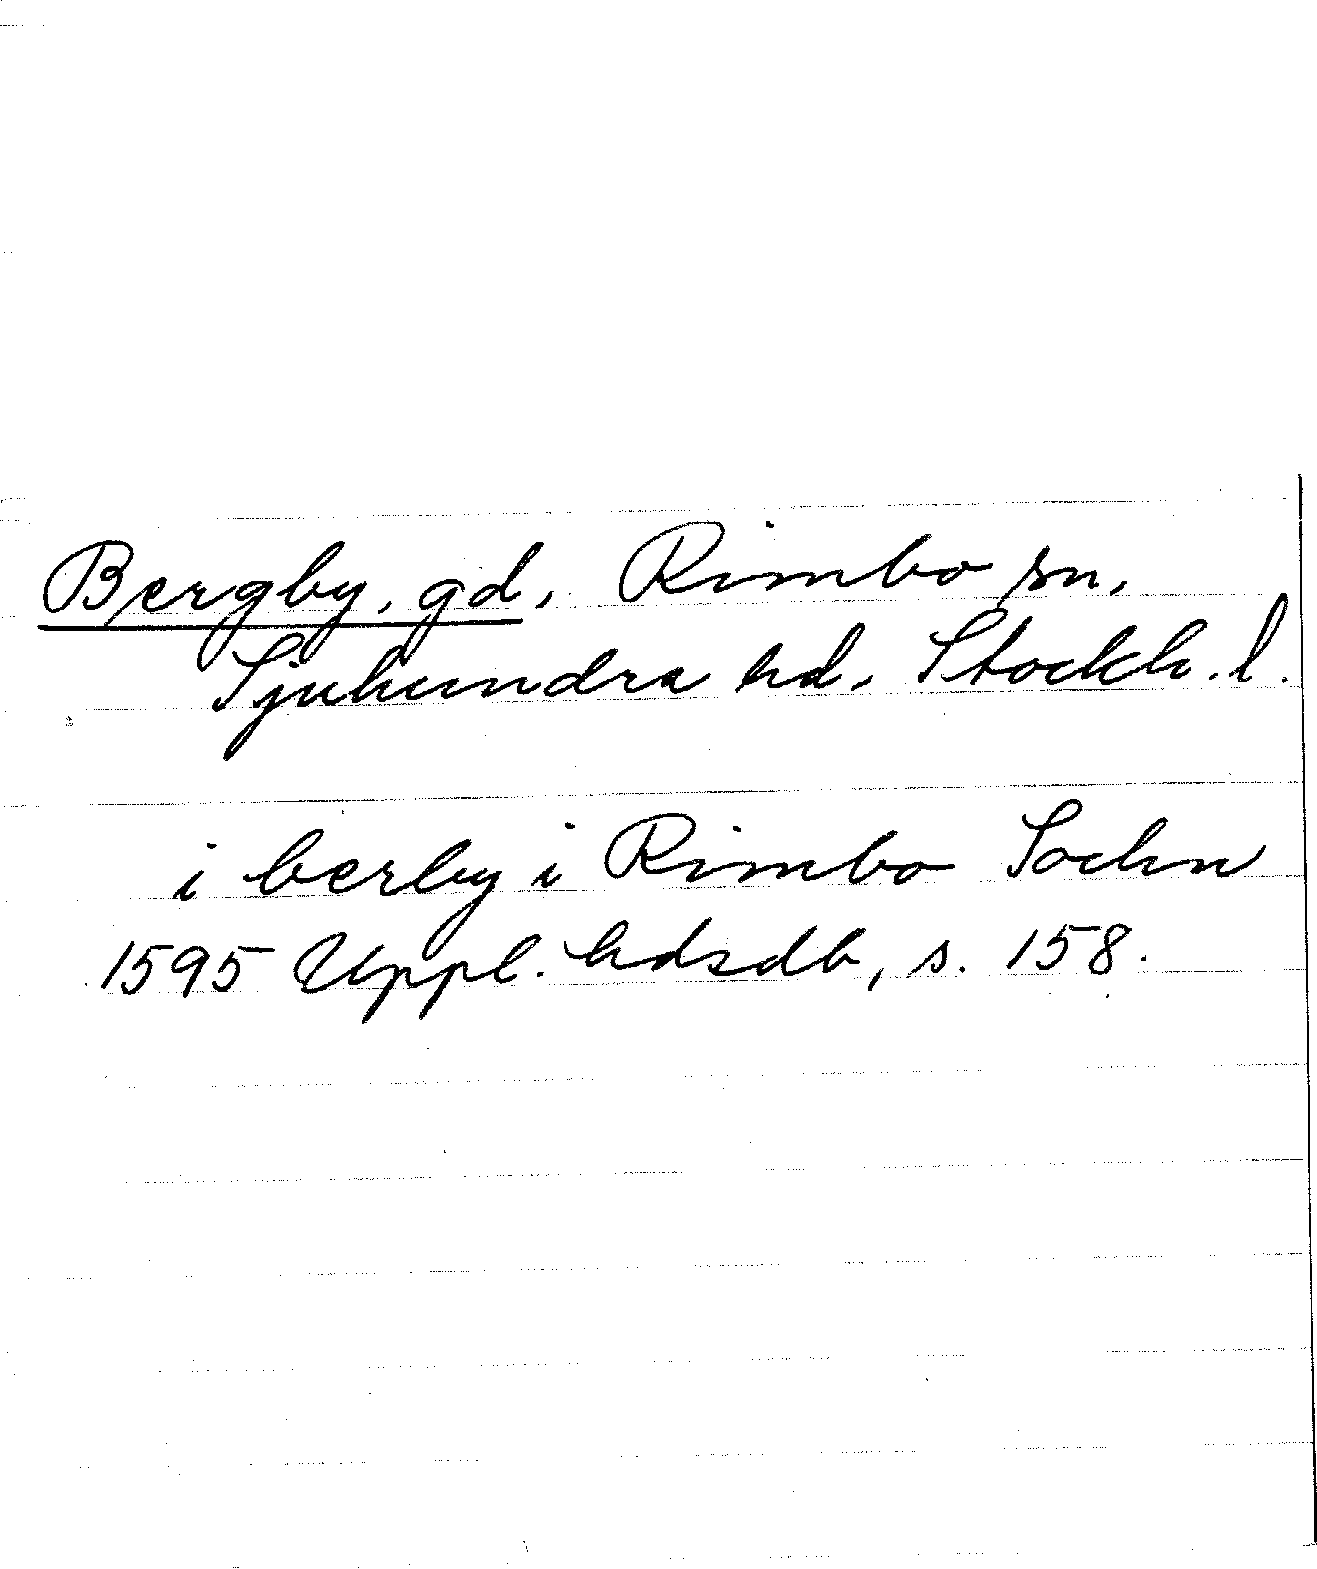 Bergby, gd, Rimbo sn,
Sjuhundra hd. Stockh. l.
i berby i Rimbo Sochn
1595 Uppl. hdsdb, s. 158.